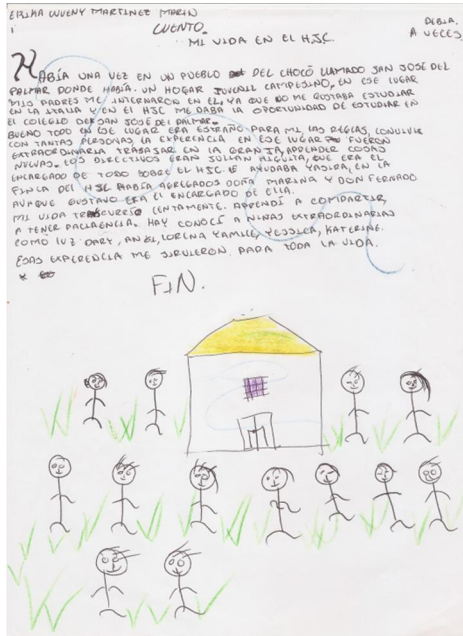 ERIKA WUENY MARTINEZ MARIN
DEBIA.
A VECES
CUENTO.
MI VIDA EN EL HJC
HABÍA UNA VEZ EN UN PUEBLO DEL CHOCÓ LLAMADO SAN JOSÉ DEL
PALMAR DONDE HABÍA. UN HOGAR JUVENIL CAMPESINO, EN ESE LUGAR
MIS PADRES ME INTERNARON EN EL, YA QUE NO ME GUSTABA ESTUDIAR
EN LA ITALIA Y EN EL HJC ME DABA LA OPORTUNIDAD DE ESTUDIAR EN
EL COLEGIO DE SAN JOSÉ DEL PALMAR.
BUENO TODO EN ESE LUGAR ERA ESTRAÑO PARA MI, LAS REGLAS, CONVIVIR
CON TANTAS PERSONAS, LA EXPERIENCIA EN ESE LUGAR FUERON
EXTRAORDINARIA TRABAJAR EN LA GRANJA, APRENDER COSAS
NUEVAS. LOS DIRECTIVOS ERAN JULIAN HIGUITA, QUE ERA EL
ENCARGADO DE TODO SOBRE EL HJC LE AYUDABA YADIRA, EN LA
FINCA DEL HJC HABÍA AGREGADOS DOÑA MARINA Y DON FERNADO
AUNQUE GUSTAVO ERA EL ENCARGADO DE ELLA.
MI VIDA LENTAMENTE. APRENDÍ A COMPARTIR,
A TENER PACIAENCIA. HAY CONOCÍ A NINAS EXTRAORDINARIAS
COMO LUZ DARY, LORENA YAMILE, YESSICA, KATERINE.
ESAS EXPERENCIA ME SIRVIERON. PARA TODA LA VIDA.
FIN.